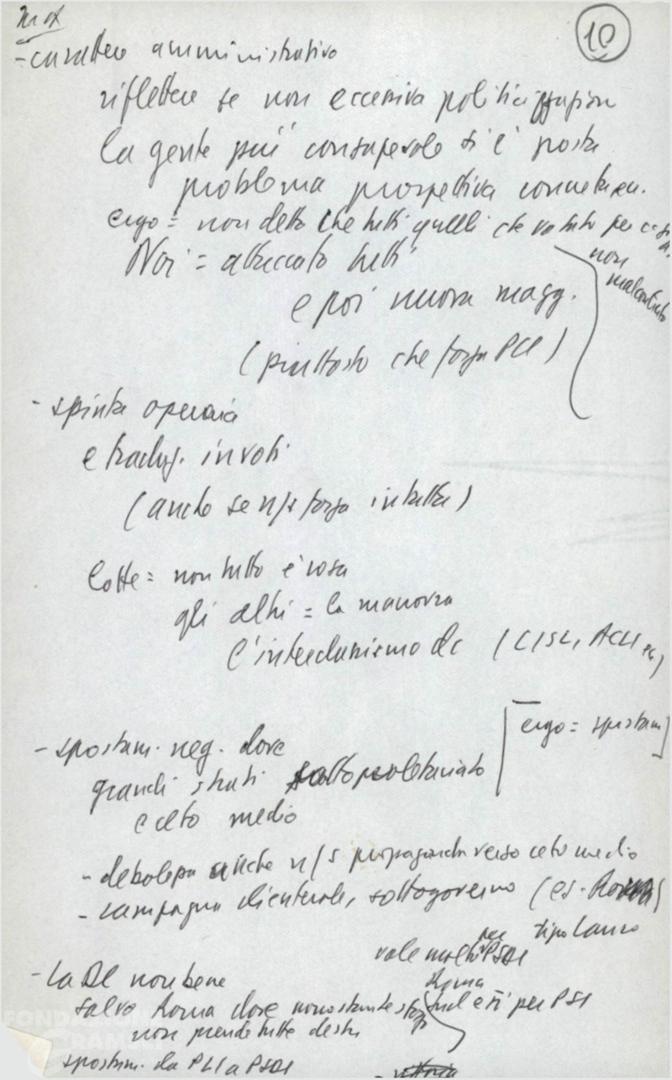 10
- carattere amministrativo
riflettere se non eccessiva politicizzazione
la gente più consapevole si è posta
problema prospettiva
ergo = non detto che tutti quelli che votato per
non malcontento
Noi = attaccato tutti
e poi nuova magg.
(piuttosto che forza PCI)
- spinta operaia
e traduz. in voti
(anche se n/s forza intatta)
Lotte = non tutto è rosa
gli altri = la manovra
l'interclassismo dc (CISL, ACLI
- spostam. neg. dove
grandi strati sottoproletariato
ceto medio
ergo = spostam
- debolezza anche n/s propaganda verso ceto medio
- campagna clientelare, sottogoverno (es. Roma)
tipo Lauro
vale anche per PSDI
- La DC non bene
Roma
salvo Roma dove nonostante e PSI
non prende tutte destre
spostam. da PLI a PSDI